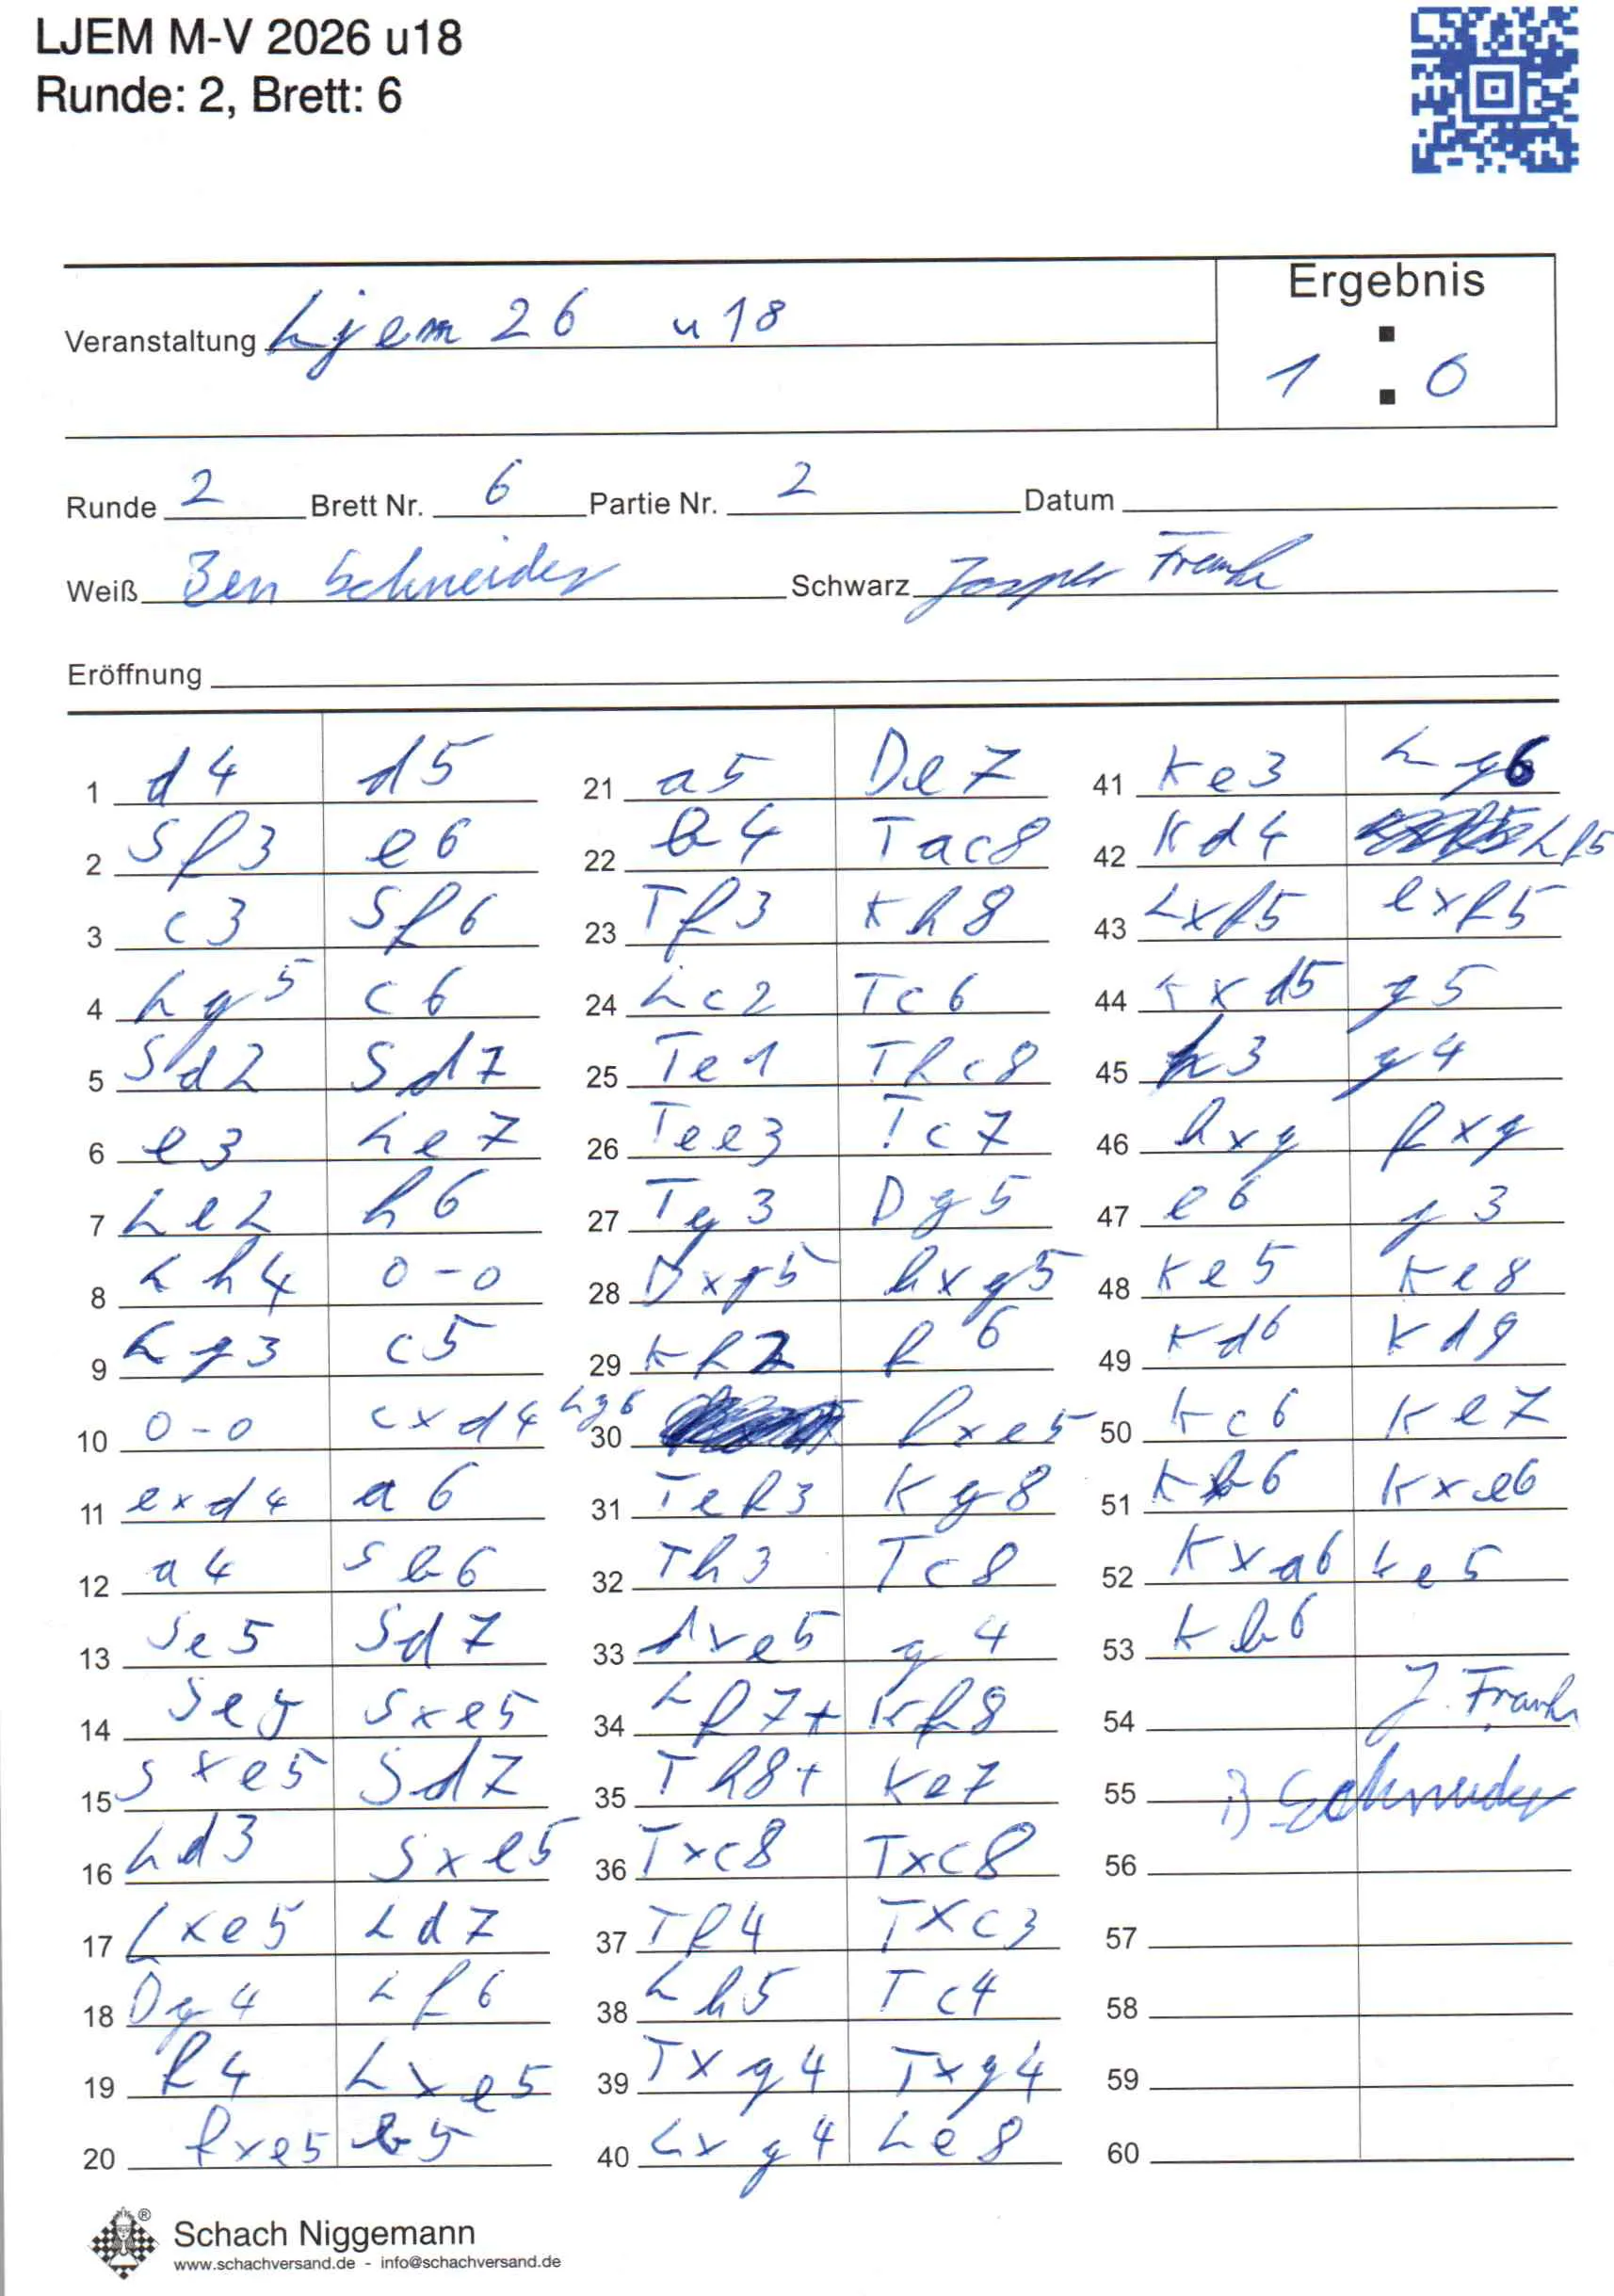 LJEM M-V 2026 u18
Runde: 2, Brett: 6
Ergebnis
Veranstaltung Ljem 26 u18
1 : 0
Runde 2 Brett Nr. 6 Partie Nr. 2 Datum
Weiß Ben Schneider Schwarz Jasper Frank
Eröffnung
1 d4 d5
2 Sf3 e6
3 c3 Sf6
4 Lg5 c6
5 Sd2 Sd7
6 e3 Le7
7 Le2 h6
8 Lh4 0-0
9 Lg3 c5
10 0-0 cxd4
11 exd4 a6
12 a4 Sb6
13 Se5 Sd7
14 Sxe5
15 Sxe5 Sd7
16 Ld3 Sxe5
17 Lxe5 Ld7
18 Dg4 Lf6
19 f4 Lxe5
20 fxe5 b5
21 a5 De7
22 b4 Tac8
23 Tf3 Kh8
24 Lc2 Tc6
25 Te1 Tfc8
26 Tee3 Tc7
27 Tg3 Dg5
28 Dxg5 hxg5
29 Kf2 f6
30 Lg6 fxe5
31 Tef3 Kg8
32 Th3 Tc8
33 dxe5 g4
34 Lf7+ Kf8
35 Th8+ Ke7
36 Txc8 Txc8
37 Tf4 Txc3
38 Lh5 Tc4
39 Txg4 Txg4
40 Lxg4 Le8
41 Ke3 Lg6
42 Kd4 Lf5
43 Lxf5 exf5
44 Kxd5 g5
45 h3 g4
46 hxg fxg
47 e6 g3
48 Ke5 Ke8
49 Kd6 Kd8
50 Kc6 Ke7
51 Kb6 Kxe6
52 Kxa6 Ke5
53 Kb6
54 J. Frank
55 B Schneider
56
57
58
59
60
Schach Niggemann
www.schachversand.de - info@schachversand.de